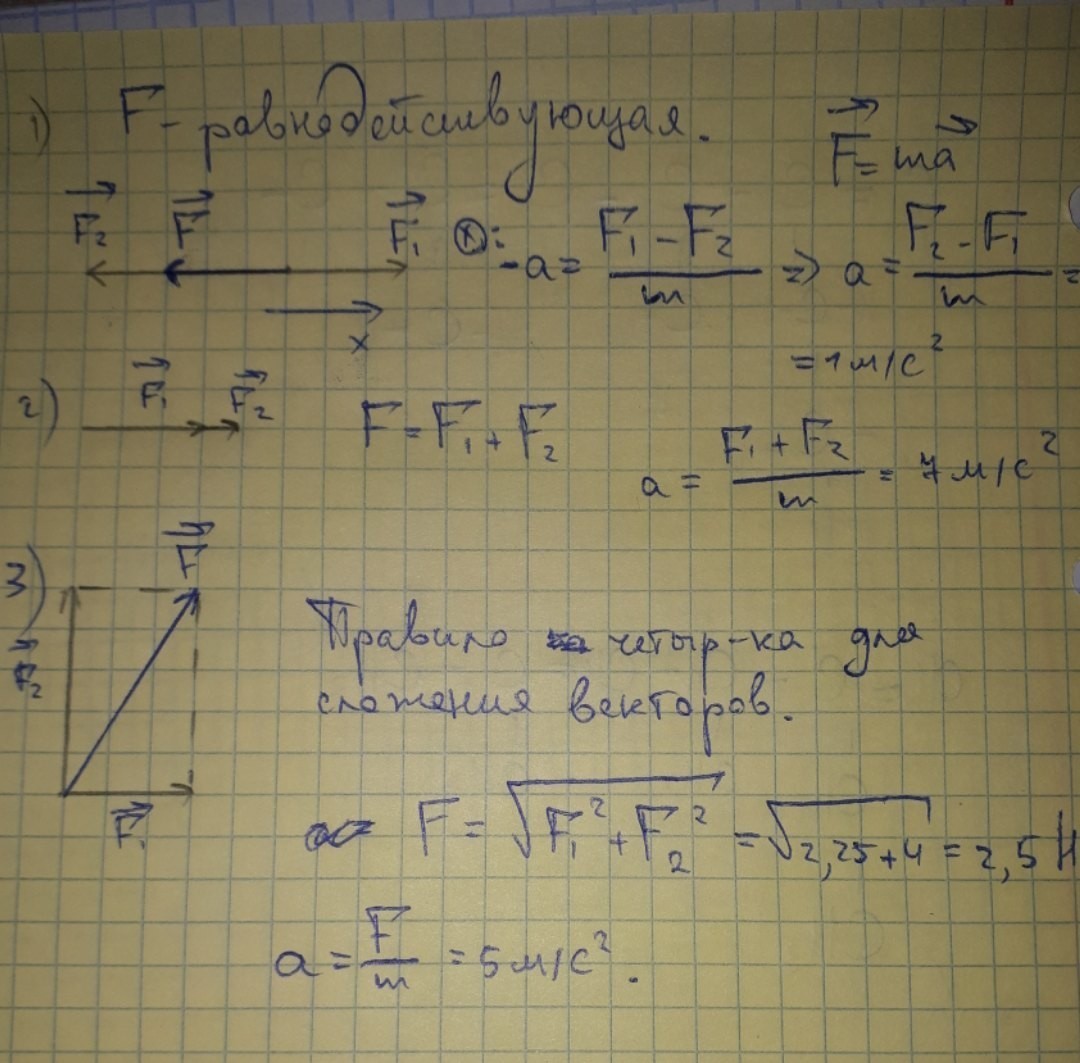 1) F - равнодействующая.
F⃗ = ma⃗
F⃗₂ F⃗ F⃗₁ (x): -a = (F₁ - F₂)/m => a = (F₂ - F₁)/m =
x
= 1 м/с²
2) F⃗₁ F⃗₂ F = F₁ + F₂
a = (F₁ + F₂)/m = 7 м/с²
3) F⃗
F⃗₂ Правило четыр-ка для
сложения векторов.
F⃗₁ F = √(F₁² + F₂²) = √(2,25+4) = 2,5 Н
a = F/m = 5 м/с².